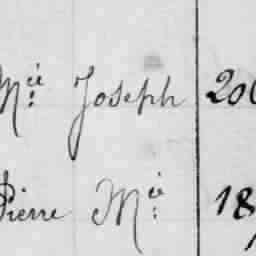 Mie: Joseph 200
Pierre Mie: 18